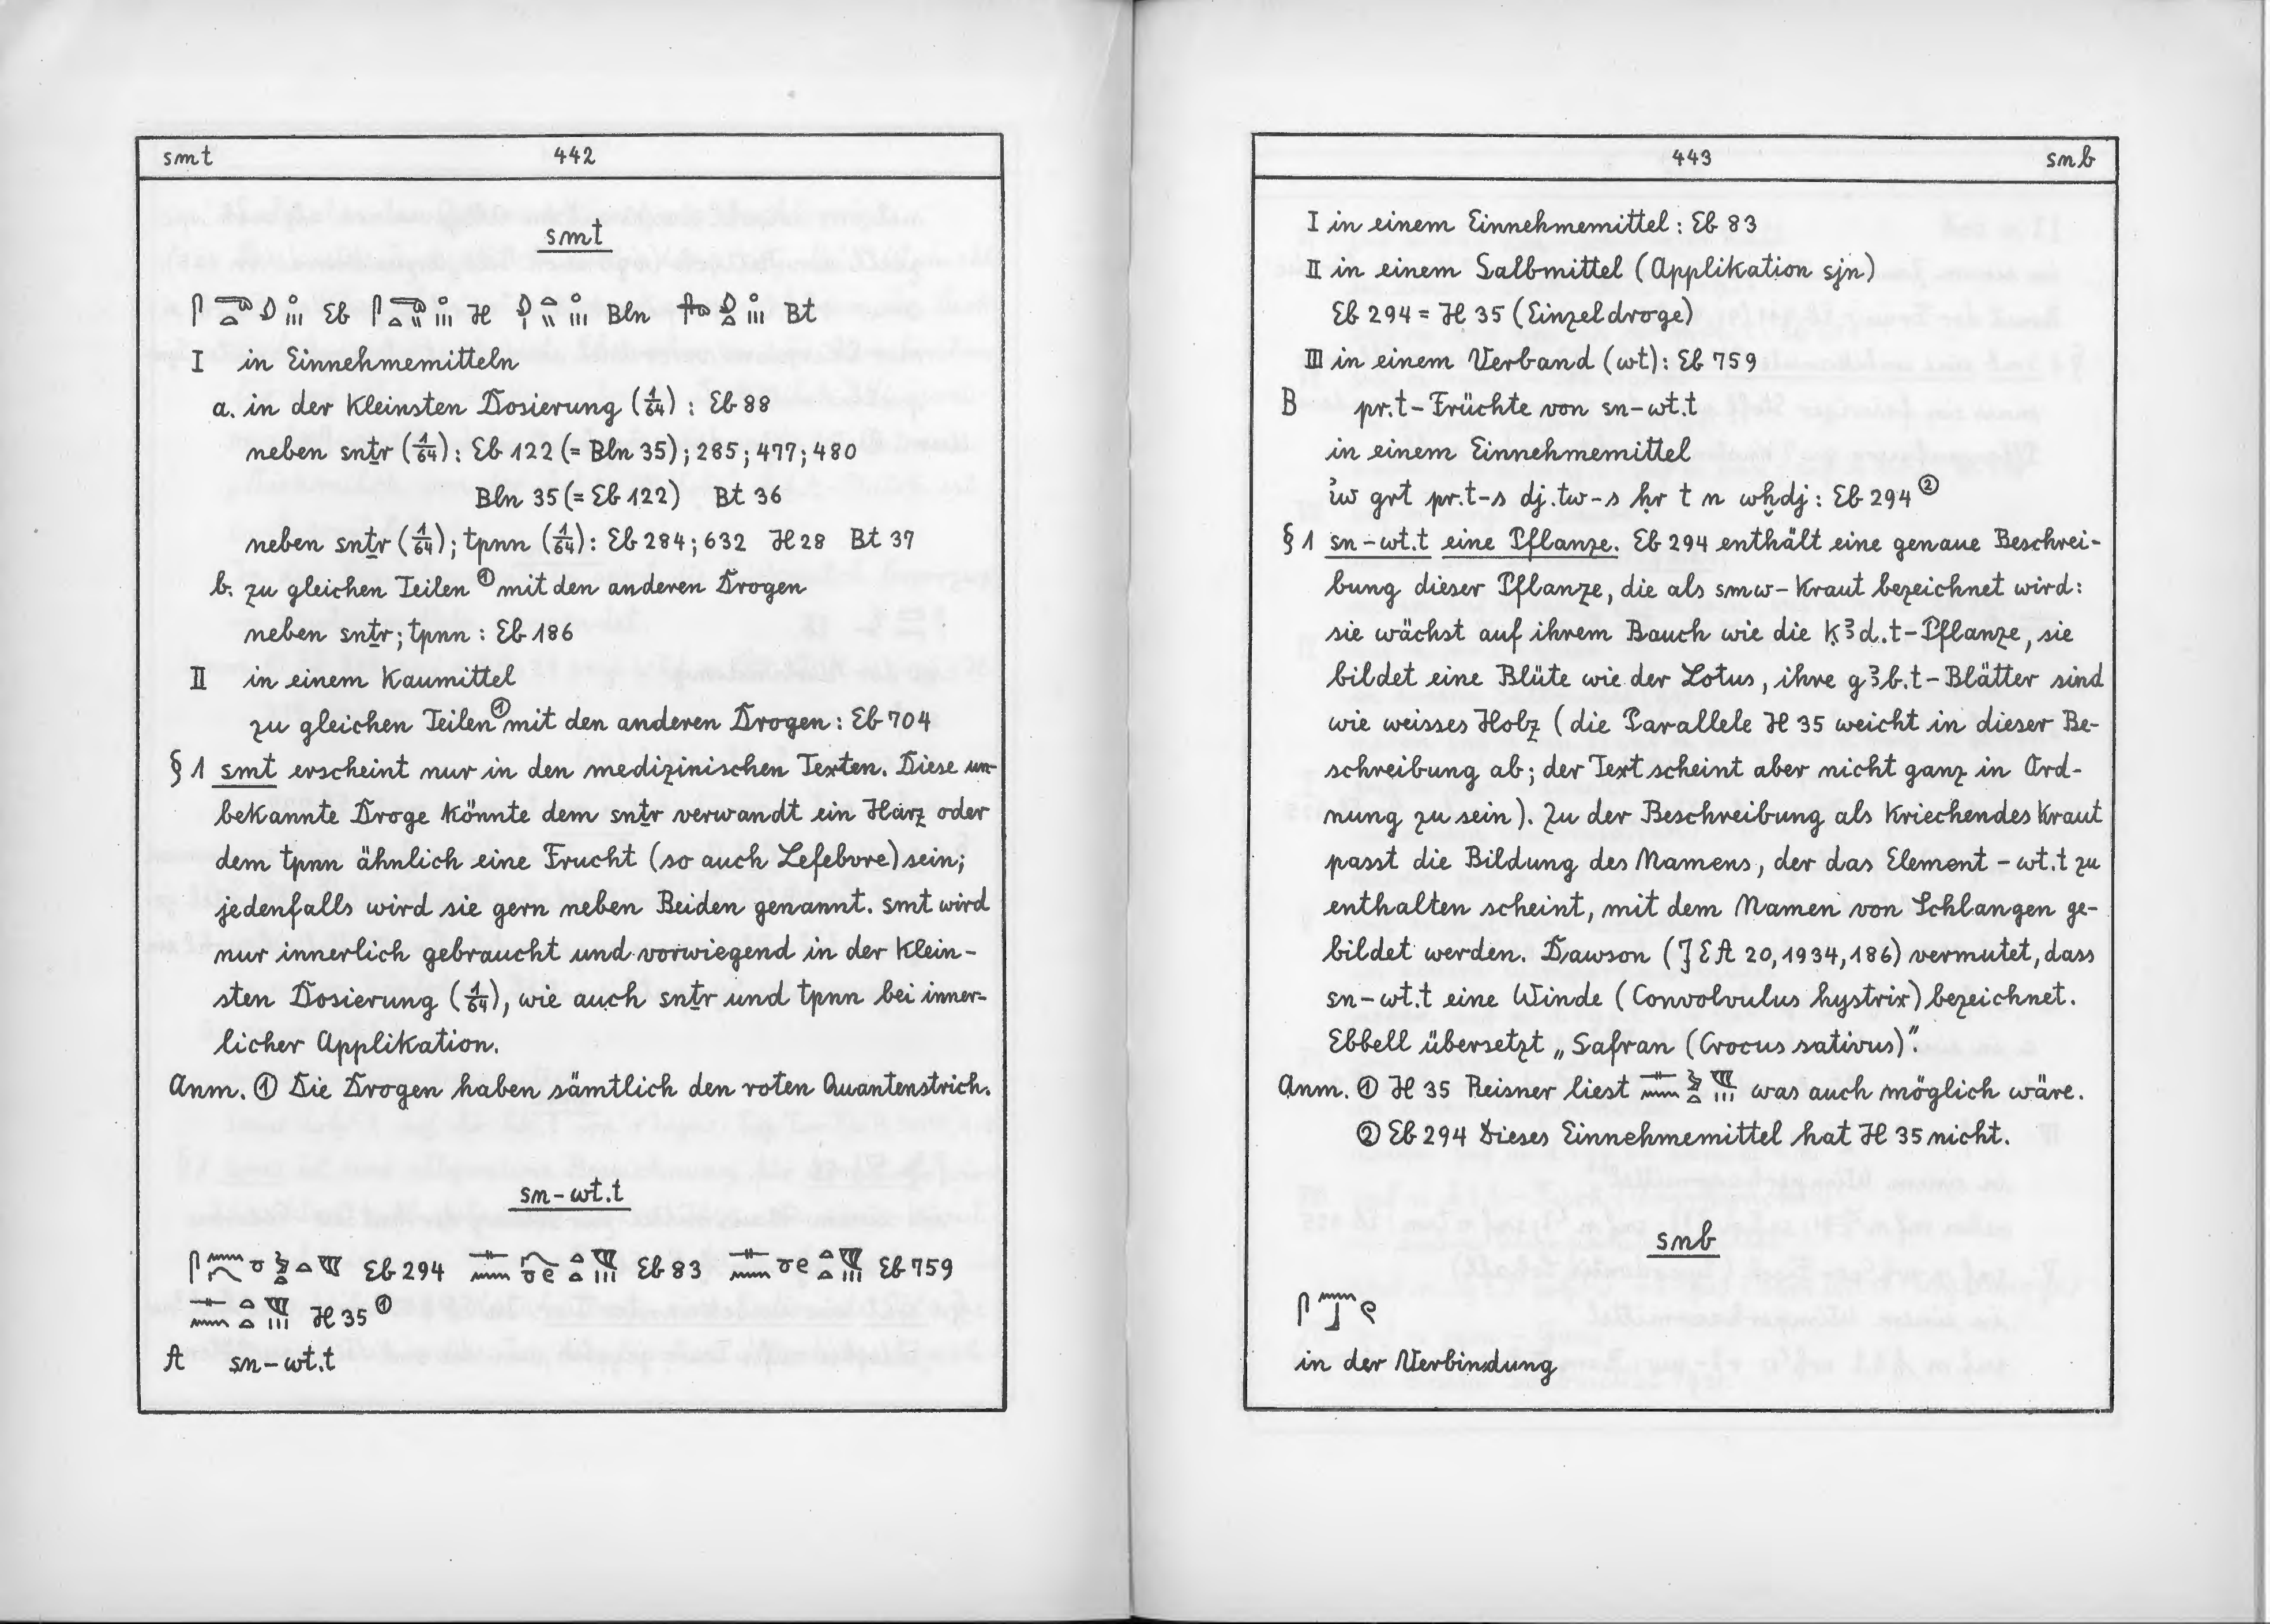 smt 442
smt
Eb H Bln Bt
I in Einnehmemitteln
a. in der kleinsten Dosierung (1/64) : Eb 88
neben snṯr (1/64) : Eb 122 (= Bln 35) ; 285 ; 477 ; 480
Bln 35 (= Eb 122) Bt 36
neben snṯr (1/64) ; tpnn (1/64) : Eb 284 ; 632 H 28 Bt 37
b. zu gleichen Teilen ① mit den anderen Drogen
neben snṯr ; tpnn : Eb 186
II in einem Kaumittel
zu gleichen Teilen ① mit den anderen Drogen : Eb 704
§ 1 smt erscheint nur in den medizinischen Texten. Diese un-
bekannte Droge könnte dem snṯr verwandt ein Harz oder
dem tpnn ähnlich eine Frucht (so auch Lefebvre) sein;
jedenfalls wird sie gern neben Beiden genannt. smt wird
nur innerlich gebraucht und vorwiegend in der klein-
sten Dosierung (1/64), wie auch snṯr und tpnn bei inner-
licher Applikation.
Anm. ① Die Drogen haben sämtlich den roten Quantenstrich.
sn-wt.t
Eb 294 Eb 83 Eb 759
H 35 ①
A sn-wt.t
443 snb
I in einem Einnehmemittel : Eb 83
II in einem Salbmittel (Applikation sjn)
Eb 294 = H 35 (Einzeldroge)
III in einem Verband (wt) : Eb 759
B pr.t-Früchte von sn-wt.t
in einem Einnehmemittel
ỉw grt pr.t-s dj.tw-s ḥr t n wḫdj : Eb 294 ②
§ 1 sn-wt.t eine Pflanze. Eb 294 enthält eine genaue Beschrei-
bung dieser Pflanze, die als smw-Kraut bezeichnet wird:
sie wächst auf ihrem Bauch wie die ḳꜣd.t-Pflanze, sie
bildet eine Blüte wie der Lotus, ihre gꜣb.t-Blätter sind
wie weisses Holz (die Parallele H 35 weicht in dieser Be-
schreibung ab; der Text scheint aber nicht ganz in Ord-
nung zu sein). Zu der Beschreibung als kriechendes Kraut
passt die Bildung des Namens, der das Element -wt.t zu
enthalten scheint, mit dem Namen von Schlangen ge-
bildet werden. Dawson (JEA 20, 1934, 186) vermutet, dass
sn-wt.t eine Winde (Convolvulus hystrix) bezeichnet.
Ebbell übersetzt „Safran (Crocus sativus)".
Anm. ① H 35 Reisner liest was auch möglich wäre.
② Eb 294 Dieses Einnehmemittel hat H 35 nicht.
snb
in der Verbindung